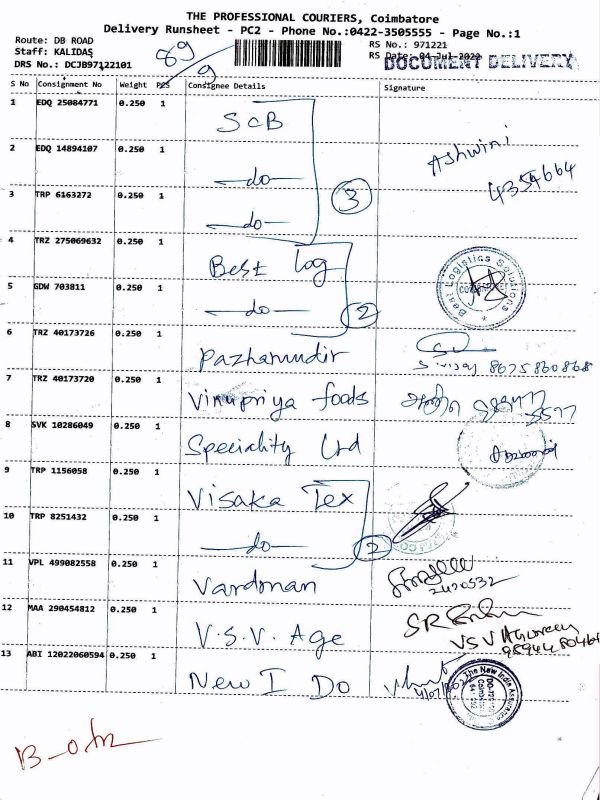 THE PROFESSIONAL COURIERS, Coimbatore
Delivery Runsheet - PC2 - Phone No.:0422-3505555 - Page No.:1
Route: DB ROAD
Staff: KALIDAS
DRS No.: DCJB97122101
89
9
RS No.: 971221
RS Date: 04-Jul-2022
DOCUMENT DELIVERY
S No Consignment No Weight PCS Consignee Details Signature
1 EDQ 25084771 0.250 1 SCB
2 EDQ 14894107 0.250 1 —do— Ashwini
3 TRP 6163272 0.250 1 —do— 3
4 TRZ 275069632 0.250 1 Best log
5 GDW 703811 0.250 1 —do— 2 Best Logistics Solutions
6 TRZ 40173726 0.250 1 Pazhamudir
7 TRZ 40173720 0.250 1 Vinupriya foods
8 SVK 10286049 0.250 1 Speciality Ltd
9 TRP 1156058 0.250 1 Visaka Tex
10 TRP 8251432 0.250 1 —do— 2
11 VPL 499082558 0.250 1 Vardman
12 MAA 290454812 0.250 1 V.S.V. Age
13 ABI 12022060594 0.250 1 New I Do The New India Assurance